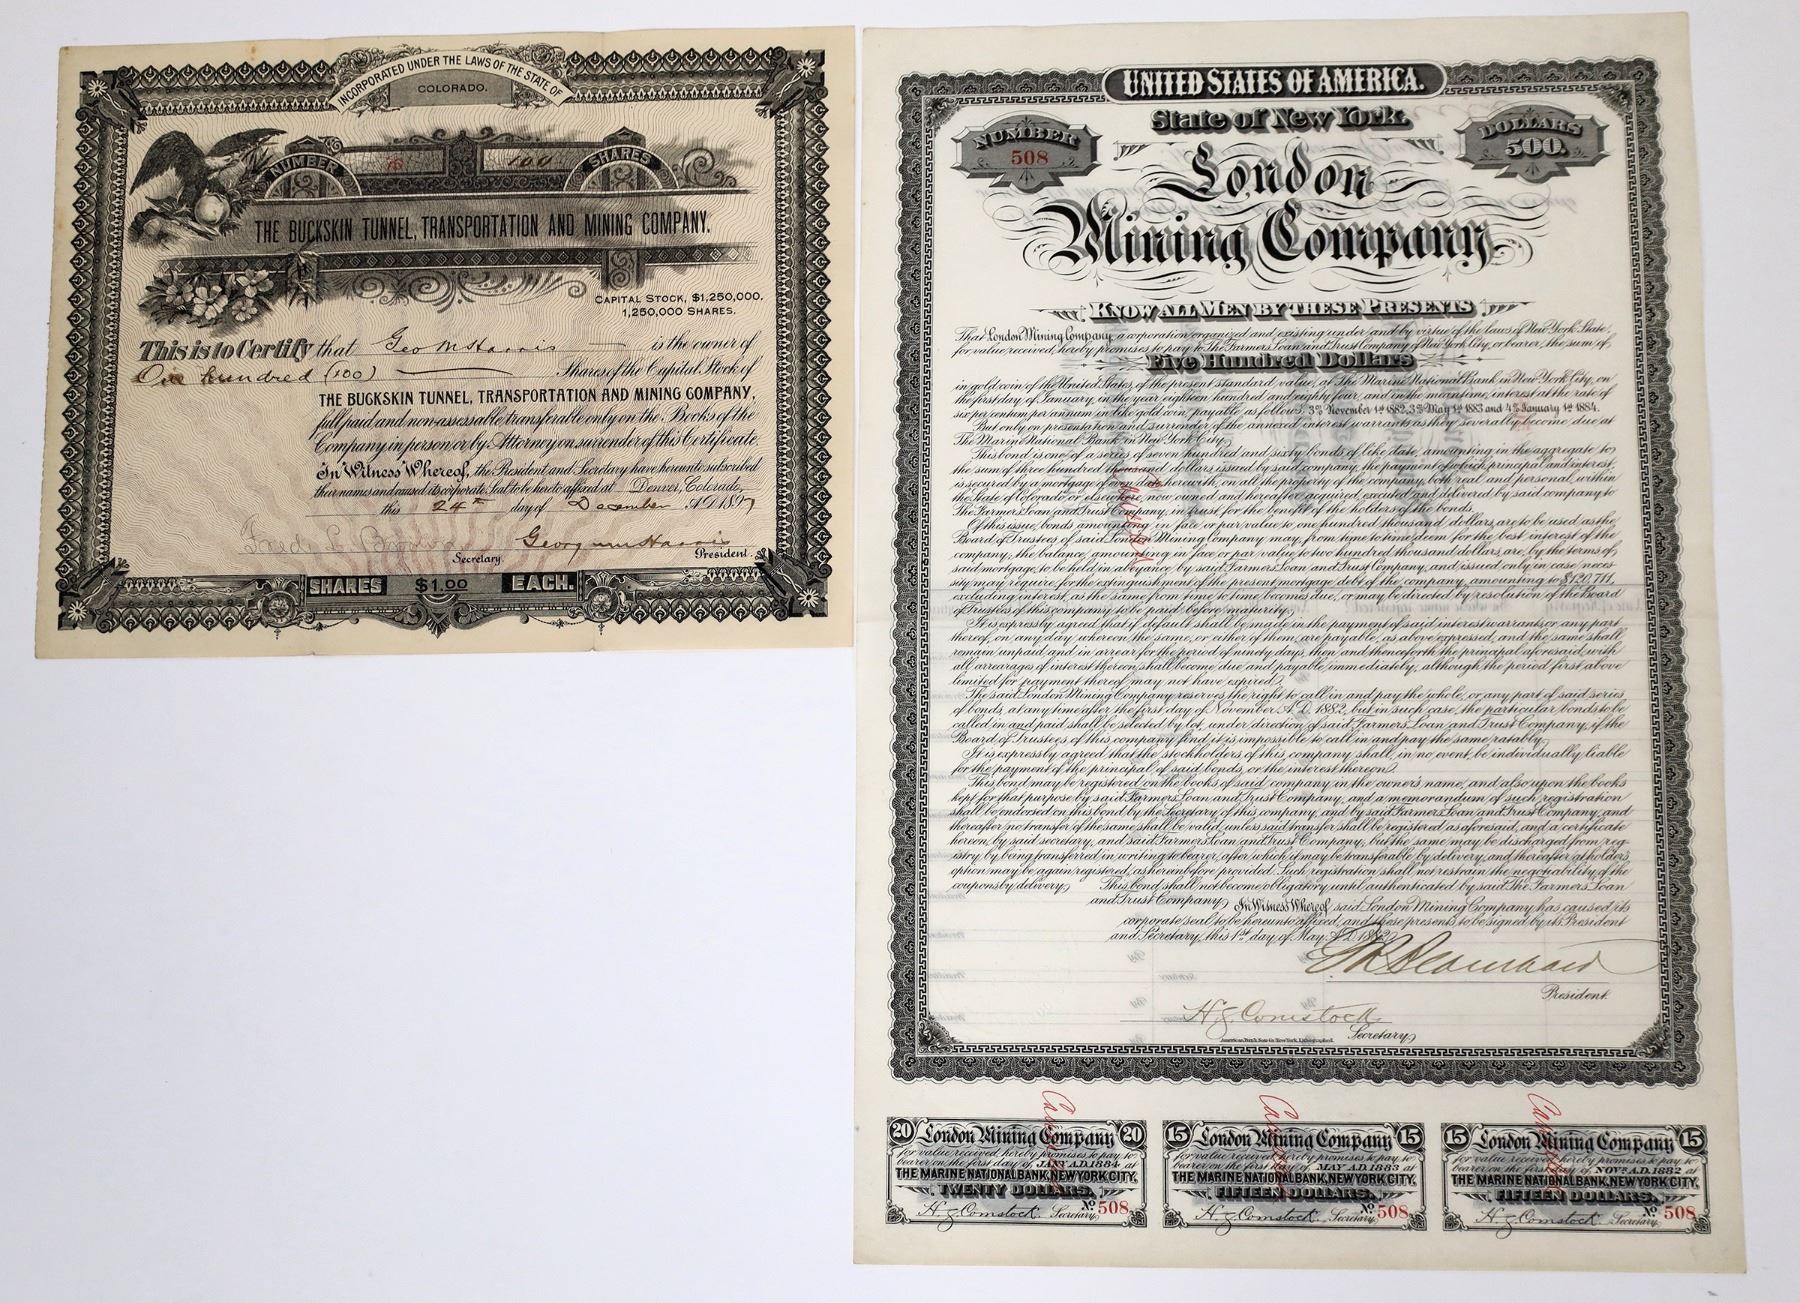 INCORPORATED UNDER THE LAWS OF THE STATE OF
COLORADO.
NUMBER 76 100 SHARES
THE BUCKSKIN TUNNEL, TRANSPORTATION AND MINING COMPANY.
CAPITAL STOCK, $1,250,000.
1,250,000 SHARES.
This is to Certify that Geo M Harris is the owner of
One hundred (100) Shares of the Capital Stock of
THE BUCKSKIN TUNNEL, TRANSPORTATION AND MINING COMPANY,
full paid and non-assessable transferable only on the Books of the
Company in person or by Attorney on surrender of this Certificate.
In Witness Whereof, the President and Secretary have hereunto subscribed
their names and caused its corporate Seal to be hereto affixed at Denver, Colorado,
this 24th day of December A.D. 1897
Fred L. Secretary. George M Harris President.
SHARES $1.00 EACH.
UNITED STATES OF AMERICA.
State of New York.
NUMBER 508
DOLLARS 500.
London
Mining Company.
KNOW ALL MEN BY THESE PRESENTS
That London Mining Company, a corporation organized and existing under and by virtue of the laws of New York State,
for value received, hereby promises to pay to The Farmers Loan and Trust Company of New York City, or bearer, the sum of,
Five Hundred Dollars
in gold coin of the United States, of the present standard value, at The Marine National Bank in New York City, on
the first day of January, in the year eighteen hundred and eighty four, and in the meantime, interest at the rate of
six per centum per annum in like gold coin, payable as follows: 3% November 1st 1882, 3% May 1st 1883 and 4% January 1st 1884.
But only on presentation and surrender of the annexed interest warrants as they severally become due at
The Marine National Bank in New York City.
This bond is one of a series of seven hundred and sixty bonds of like date, amounting in the aggregate to
the sum of three hundred thousand dollars issued by said company, the payment of which principal and interest,
is secured by a mortgage of even date herewith, on all the property of the company, both real and personal, within
the State of Colorado or elsewhere, now owned and hereafter acquired, executed and delivered by said company to
The Farmers Loan and Trust Company, in trust for the benefit of the holders of the bonds.
Of this issue, bonds amounting in face or par value to one hundred thousand dollars, are to be used as the
Board of Trustees of said London Mining Company may, from time to time deem for the best interest of the
company, the balance, amounting in face or par value to two hundred thousand dollars, are, by the terms of
said mortgage, to be held in abeyance by said Farmers Loan and Trust Company, and issued only in case neces-
sity may require, for the extinguishment of the present mortgage debt of the company, amounting to $120,711,
excluding interest, as the same from time to time, becomes due, or may be directed by resolution of the Board
of Trustees of this company to be paid before maturity.
It is expressly agreed that if default shall be made in the payment of said interest warrants or any part
thereof, on any day whereon the same, or either of them, are payable, as above expressed, and the same shall
remain unpaid and in arrear for the period of ninety days, then and thenceforth the principal aforesaid, with
all arrearages of interest thereon, shall become due and payable immediately, although the period first above
limited for payment thereof may not have expired.
The said London Mining Company reserves the right to call in and pay the whole, or any part of said series
of bonds, at any time after the first day of November A.D. 1882, but in such case, the particular bonds to be
called in and paid shall be selected by lot, under direction of said Farmers Loan and Trust Company, if the
Board of Trustees of this company find it is impossible to call in and pay the same ratably.
It is expressly agreed that the stockholders of this company shall, in no event, be individually liable
for the payment of the principal of said bonds, or the interest thereon.
This bond may be registered on the books of said company in the owner's name, and also upon the books
kept for that purpose by said Farmers Loan and Trust Company, and a memorandum of such registration
shall be endorsed on this bond by the Secretary of this company, and by said Farmers Loan and Trust Company, and
thereafter no transfer of the same shall be valid, unless said transfer shall be registered, as aforesaid, and a certificate
hereon, by said secretary, and said Farmers Loan and Trust Company; but the same may be discharged from reg-
istry by being transferred in writing to bearer, after which it may be transferable by delivery, and thereafter at holder's
option may be again registered, as hereinbefore provided. Such registration shall not restrain the negotiability of the
coupons by delivery. This bond shall not become obligatory until authenticated by said The Farmers Loan
and Trust Company. In Witness Whereof, said London Mining Company has caused its
corporate seal to be hereunto affixed, and these presents to be signed by its President
and Secretary, this 1st day of May A.D. 1882.
President.
H. J. Comstock
Secretary.
American Bank Note Co. New York, Lithographed.
Cancelled
Cancelled Cancelled Cancelled
20 London Mining Company 20
for value received hereby promises to pay to
bearer on the first day of JANY A.D. 1884 at
THE MARINE NATIONAL BANK, NEW YORK CITY,
TWENTY DOLLARS.
No 508
H. J. Comstock Secretary
15 London Mining Company 15
for value received hereby promises to pay to
bearer on the first day of MAY A.D. 1883 at
THE MARINE NATIONAL BANK, NEW YORK CITY,
FIFTEEN DOLLARS.
No 508
H. J. Comstock Secretary
15 London Mining Company 15
for value received hereby promises to pay to
bearer on the first day of NOVR A.D. 1882 at
THE MARINE NATIONAL BANK, NEW YORK CITY,
FIFTEEN DOLLARS.
No 508
H. J. Comstock Secretary